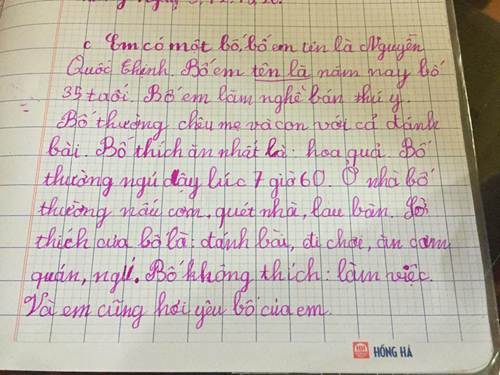 c Em có một bố, bố em tên là Nguyễn
Quốc Thịnh. Bố em tên là năm nay bố
35 tuổi. Bố em làm nghề bán thú y.
Bố thường chêu mẹ và con với cả đánh
bài. Bố thích ăn nhất là: hoa quả. Bố
thường ngủ dậy lúc 7 giờ 60. Ở nhà bố
thường nấu cơm, quét nhà, lau bàn. Sở
thích của bố là: đánh bài, đi chơi, ăn cơm
quán, ngủ. Bố không thích: làm việc.
Và em cũng hơi yêu bố của em.
HỒNG HÀ